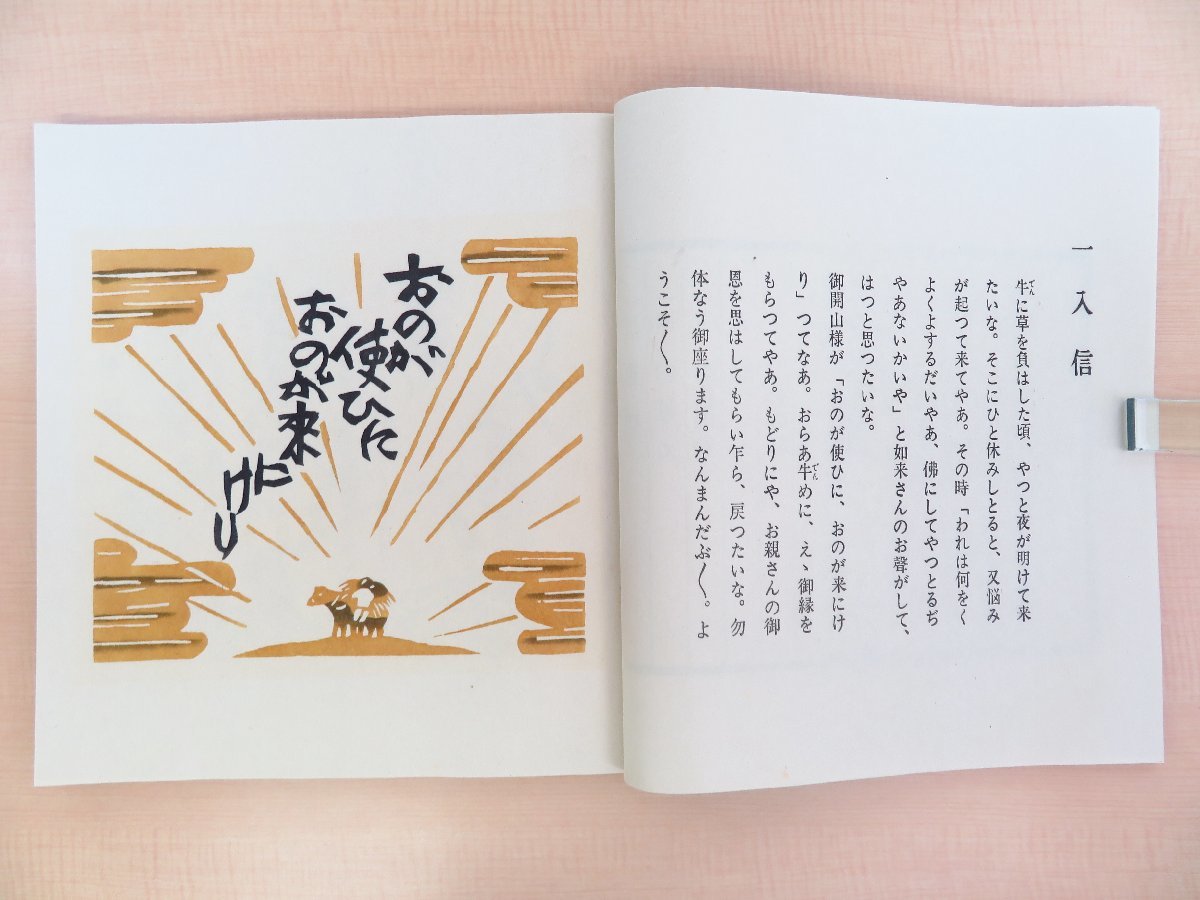 一 入 信
牛に草を負はした頃、やつと夜が明けて来
でん
たいな。そこにひと休みしとると、又悩み
が起つて来てやあ。その時「われは何をく
よくよするだいやあ、佛にしてやつとるぢ
やあないかいや」と如来さんのお聲がして、
はつと思つたいな。
御開山様が「おのが使ひに、おのが来にけ
り」つてなあ。おらあ牛めに、えゝ御縁を
でん
もらつてやあ。もどりにや、お親さんの御
恩を思はしてもらい乍ら、戻つたいな。勿
体なう御座ります。なんまんだぶ〱。よ
うこそ〱。
おのが
使ひに
おのが来
に
けり